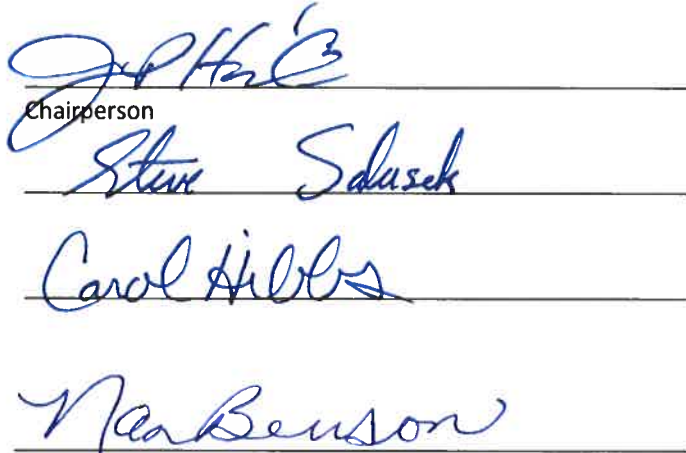 Chairperson
Steve Salusek
Carol Hibbs
Nan Benson